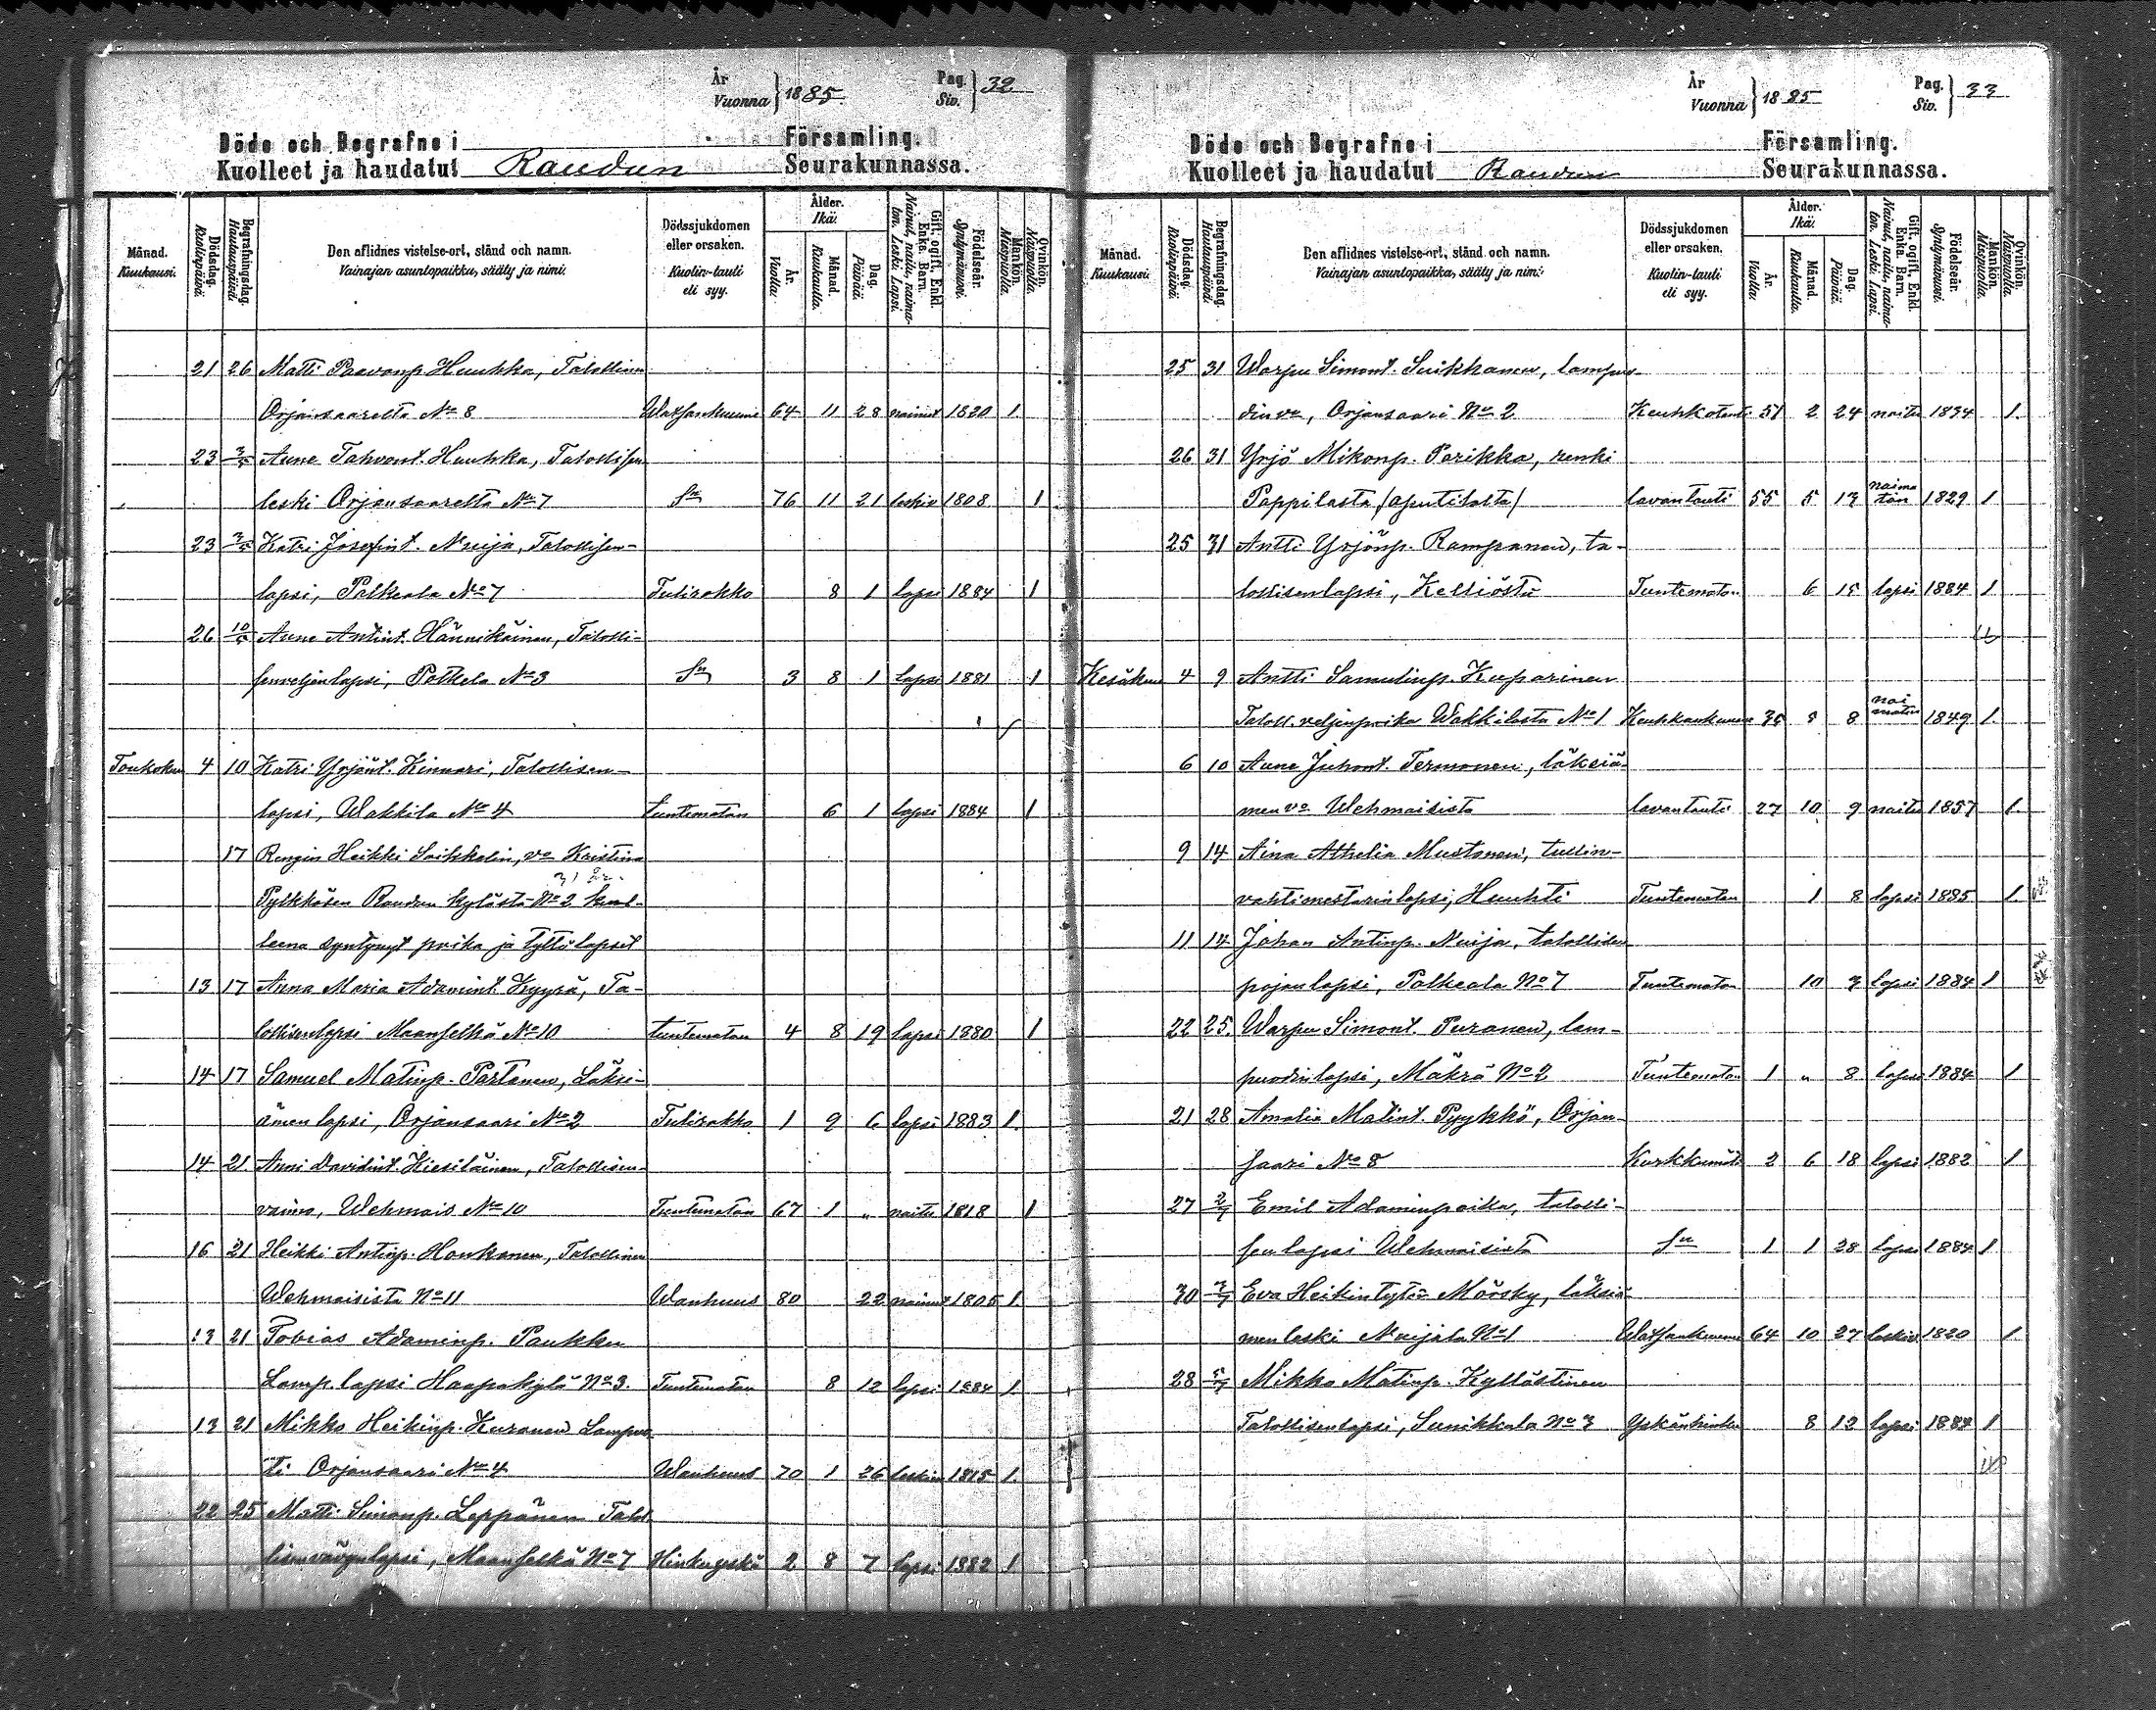 År
Vuonna } 1885.
Pag.
Siv. } 32
Döde och Begrafne i Församling.
Kuolleet ja haudatut Raudun Seurakunnassa.
Månad. Kuukausi. Dödsdag. Kuolinpäivä. Begrafningsdag. Hautauspäivä. Den aflidnes vistelse-ort, stånd och namn. Vainajan asuntopaikka, sääty ja nimi. Dödssjukdomen eller orsaken. Kuolin-tauti eli syy. Ålder. Ikä. År. Vuotta. Månad. Kuukautta. Dag. Päivää. Gift, ogift, Enkl. Enka. Barn. Nainut, naitu, naimaton. Leski. Lapsi. Födelseår. Syntymävuosi. Mankön. Miespuolia. Qvinkön. Naispuolia.
21 26 Matti Paavonp. Huuhka, Talollinen
Orjansaarelta No 8 Watsankuume 64 11 28 nainut 1820 1.
23 3/5 Anne Tahvont. Huuhka, Talollisen
leski Orjansaarelta No 7 sn 76 11 21 leskiv 1808 1
23 3/5 Katri Josefint. Nuija, Talollisen-
lapsi, Palkeala No 7 Tulirokko 8 1 lapsi 1884 1
26 10/5 Anne Antint. Hännikäinen, Talolli-
senveljenlapsi, Potkela No 3 sn 3 8 1 lapsi 1881 1
Toukoku 4 10 Katri Yrjönt. Kinnari, Talollisen-
lapsi, Wakkila No 4 tuntematon 6 1 lapsi 1884 1
17 Rengin Heikki Saikkolin, vo Kristina
Pylkkäsen Raudun kylästä No 2 kuol-
leena syntynyt poika ja tyttö lapset
13 17 Anna Maria Adamint. Kyyrä, Ta-
lollisenlapsi Maanselkä No 10 tuntematon 4 8 19 lapsi 1880 1
14 17 Samuel Matinp. Partanen, Läksi-
ämen lapsi, Orjansaari No 2 Tulirokko 1 9 6 lapsi 1883 1.
14 21 Anni Davidint. Kiesiläinen, Talollisen-
vaimo, Wehmais No 10 Tuntematon 67 1 " naitu 1818 1
16 21 Heikki Antinp. Honkanen, Talollinen
Wehmaisista No 11 Wanhuus 80 22 nainut 1805 1.
13 21 Tobias Adaminp. Paukku
Lamp. lapsi Haapakylä No 3. Tuntematon 8 12 lapsi 1884 1.
13 21 Mikko Heikinp. Kuranen Lampuo-
ti Orjansaari No 4 Wanhuus 70 1 26 leskiv 1815 1.
22 25 Matti Simonp. Leppänen Talol-
lisenvävynlapsi, Maanselkä No 7 Hinkuyskä 2 8 7 lapsi 1882 1
År
Vuonna } 1885
Pag.
Siv. } 33
Döde och Begrafne i Församling.
Kuolleet ja haudatut Raudun Seurakunnassa.
Månad. Kuukausi. Dödsdag. Kuolinpäivä. Begrafningsdag. Hautauspäivä. Den aflidnes vistelse-ort, stånd och namn. Vainajan asuntopaikka, sääty ja nimi. Dödssjukdomen eller orsaken. Kuolin-tauti eli syy. Ålder. Ikä. År. Vuotta. Månad. Kuukautta. Dag. Päivää. Gift, ogift, Enkl. Enka. Barn. Nainut, naitu, naimaton. Leski. Lapsi. Födelseår. Syntymävuosi. Mankön. Miespuolia. Qvinkön. Naispuolia.
25 31 Warpu Simont. Suikkanen, lampuo-
din vo, Orjansaari No 2 Keuhkotauti 51 2 24 naitu 1834 1.
26 31 Yrjö Mikonp. Parikka, renki
Pappilasta /aputilalta/ lavantauti 55 5 13 naimaton 1829 1
25 31 Antti Yrjönp. Rampanen, ta-
lollisenlapsi, Kelliöstä Tuntematon 6 15 lapsi 1884 1
Kesäkuu 4 9 Antti Samulinp. Kuparinen
Taloll. veljenpoika Wakkilasta No 1 Keuhkonkuume 35 8 8 naimaton 1849 1.
6 10 Anne Juhont. Termonen, läksiä-
men vo Wehmaisista lavantauti 27 10 9 naitu 1857 1.
9 14 Aina Athelia Mustonen, tullin-
vahtimestarinlapsi, Huuhti Tuntematon 1 8 lapsi 1885 1.
11 14 Johan Antinp. Nuija, talollisen
pojanlapsi, Palkeala No 7 Tuntematon 10 3 lapsi 1884 1
22 25. Warpu Simont. Puranen, lam-
puodinlapsi, Mäkrä No 2 Tuntematon 1 " 8 lapsi 1884 1
21 28 Amalia Matint. Pyykkö, Orjan-
saari No 8 Kurkkumätä 2 6 18 lapsi 1882 1
27 2/7 Emil Adaminpoika, talolli-
sen lapsi Wehmaisista sn 1 1 28 lapsi 1884 1
30 3/7 Eva Heikintytär Mörsky, läksiä-
men leski Nuijala No 1 Watsankuume 64 10 27 leskiv 1820 1.
28 5/7 Mikko Matinp. Kyllästinen
Talollisenlapsi, Sunikkala No 3 Yskänhinku 8 12 lapsi 1884 1